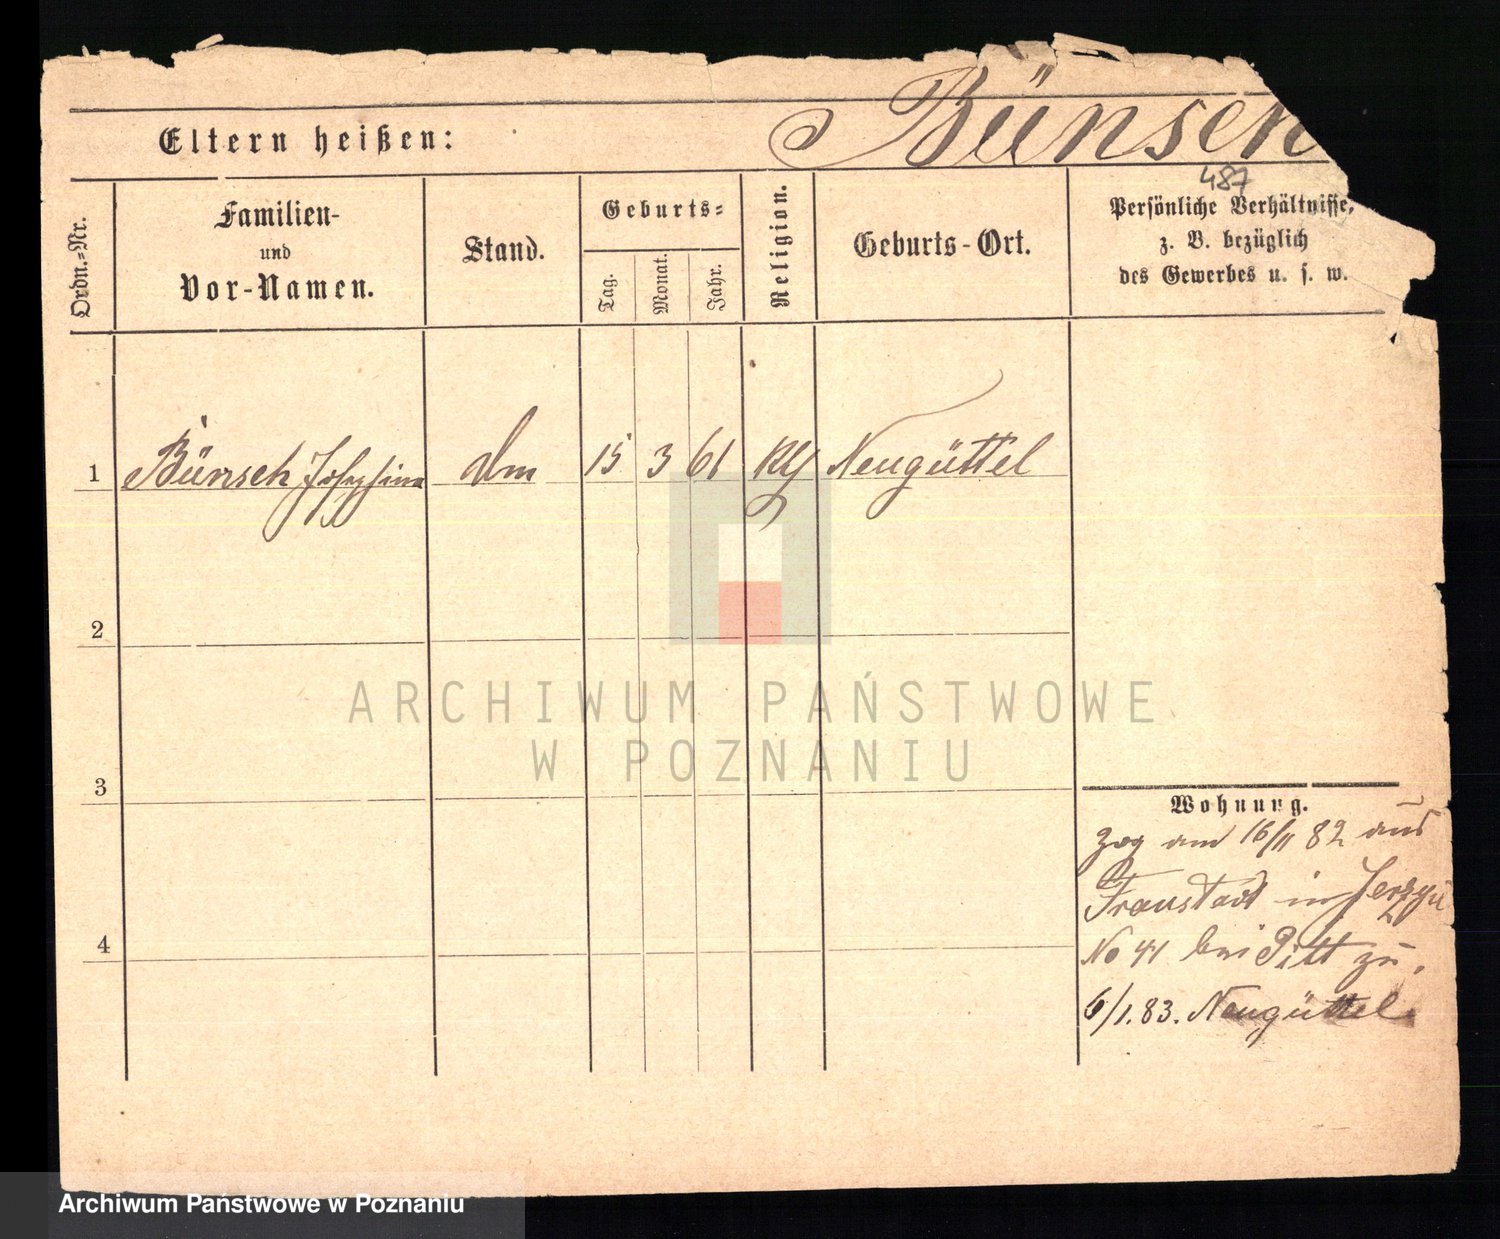 Bünsch
Eltern heißen:
487
Ordn.-Nr.
Familien-
und
Vor-Namen.
Stand.
Geburts-
Tag.
Monat.
Jahr.
Religion.
Geburts-Ort.
Persönliche Verhältnisse,
z. B. bezüglich
des Gewerbes u. s. w.
1 Bünsch Josephina Dm 15 3 61 Neugüttel
2
3
4
Wohnung.
zog am 16/11 82 aus
Fraustadt in Jerzyce
No 41 bei Pitt zu.
6/1. 83. Neugüttel
ARCHIWUM PAŃSTWOWE
W POZNANIU
Archiwum Państwowe w Poznaniu